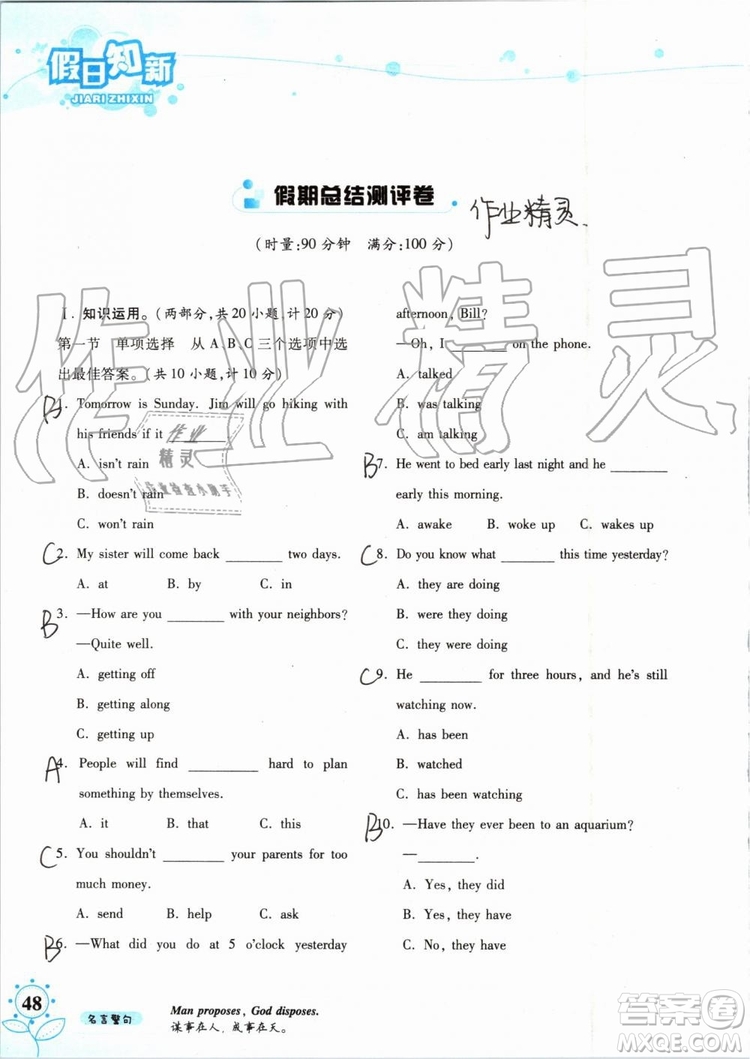 假日知新
JIARI ZHIXIN
假期总结测评卷
作业精灵、
(时量:90 分钟 满分:100 分)
Ⅰ. 知识运用。(两部分,共 20 小题,计 20 分)
第一节 单项选择 从 A B C 三个选项中选
出最佳答案。(共 10 小题,计 10 分)
B 1. Tomorrow is Sunday. Jim will go hiking with
his friends if it ________
A. isn't rain
B. doesn't rain
C. won't rain
C 2. My sister will come back ________ two days.
A. at B. by C. in
B 3. —How are you ________ with your neighbors?
—Quite well.
A. getting off
B. getting along
C. getting up
A 4. People will find ________ hard to plan
something by themselves.
A. it B. that C. this
C 5. You shouldn't ________ your parents for too
much money.
A. send B. help C. ask
B 6. —What did you do at 5 o'clock yesterday
afternoon, Bill?
—Oh, I ________ on the phone.
A. talked
B. was talking
C. am talking
B 7. He went to bed early last night and he ________
early this morning.
A. awake B. woke up C. wakes
C 8. Do you know what ________ this time yesterday?
A. they are doing
B. are they doing
C. they were doing
C 9. He ________ for three hours, and he's still
watching now.
A. has been
B. has watched
C. has been watching
B 10. —Have they ever been to an aquarium?
—________.
A. Yes, they did
B. Yes, they have
C. No, they have
作业精灵
作业
精灵
作业检查小助手
48
名言警句
Man proposes, God disposes.
谋事在人,成事在天。
答案圈
MXQE.COM